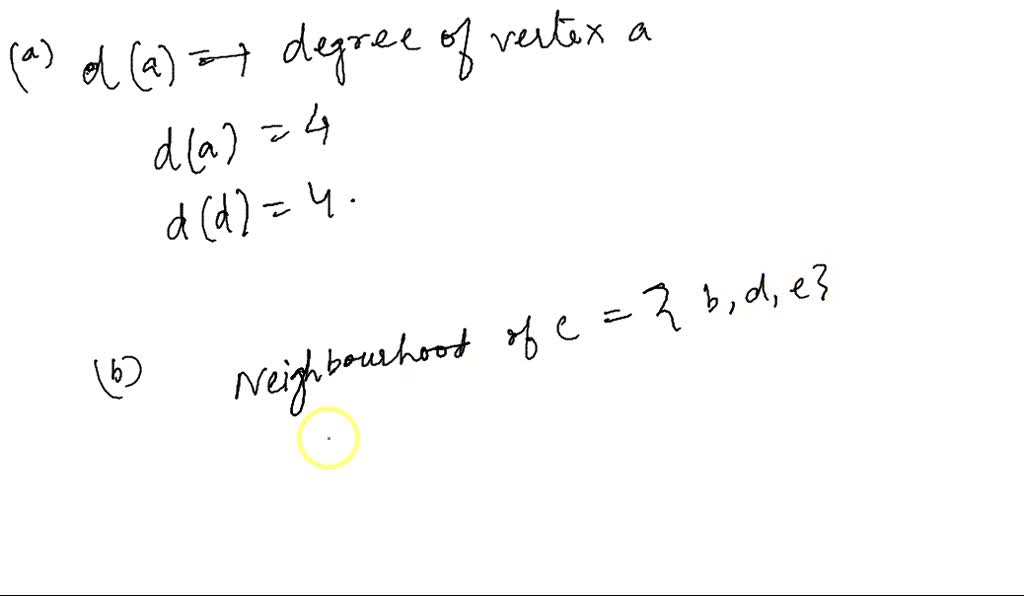 (a) d(a) ⟹ degree of vertex a
d(a) = 4
d(d) = 4.
(b) Neighbourhood of c = { b, d, e}